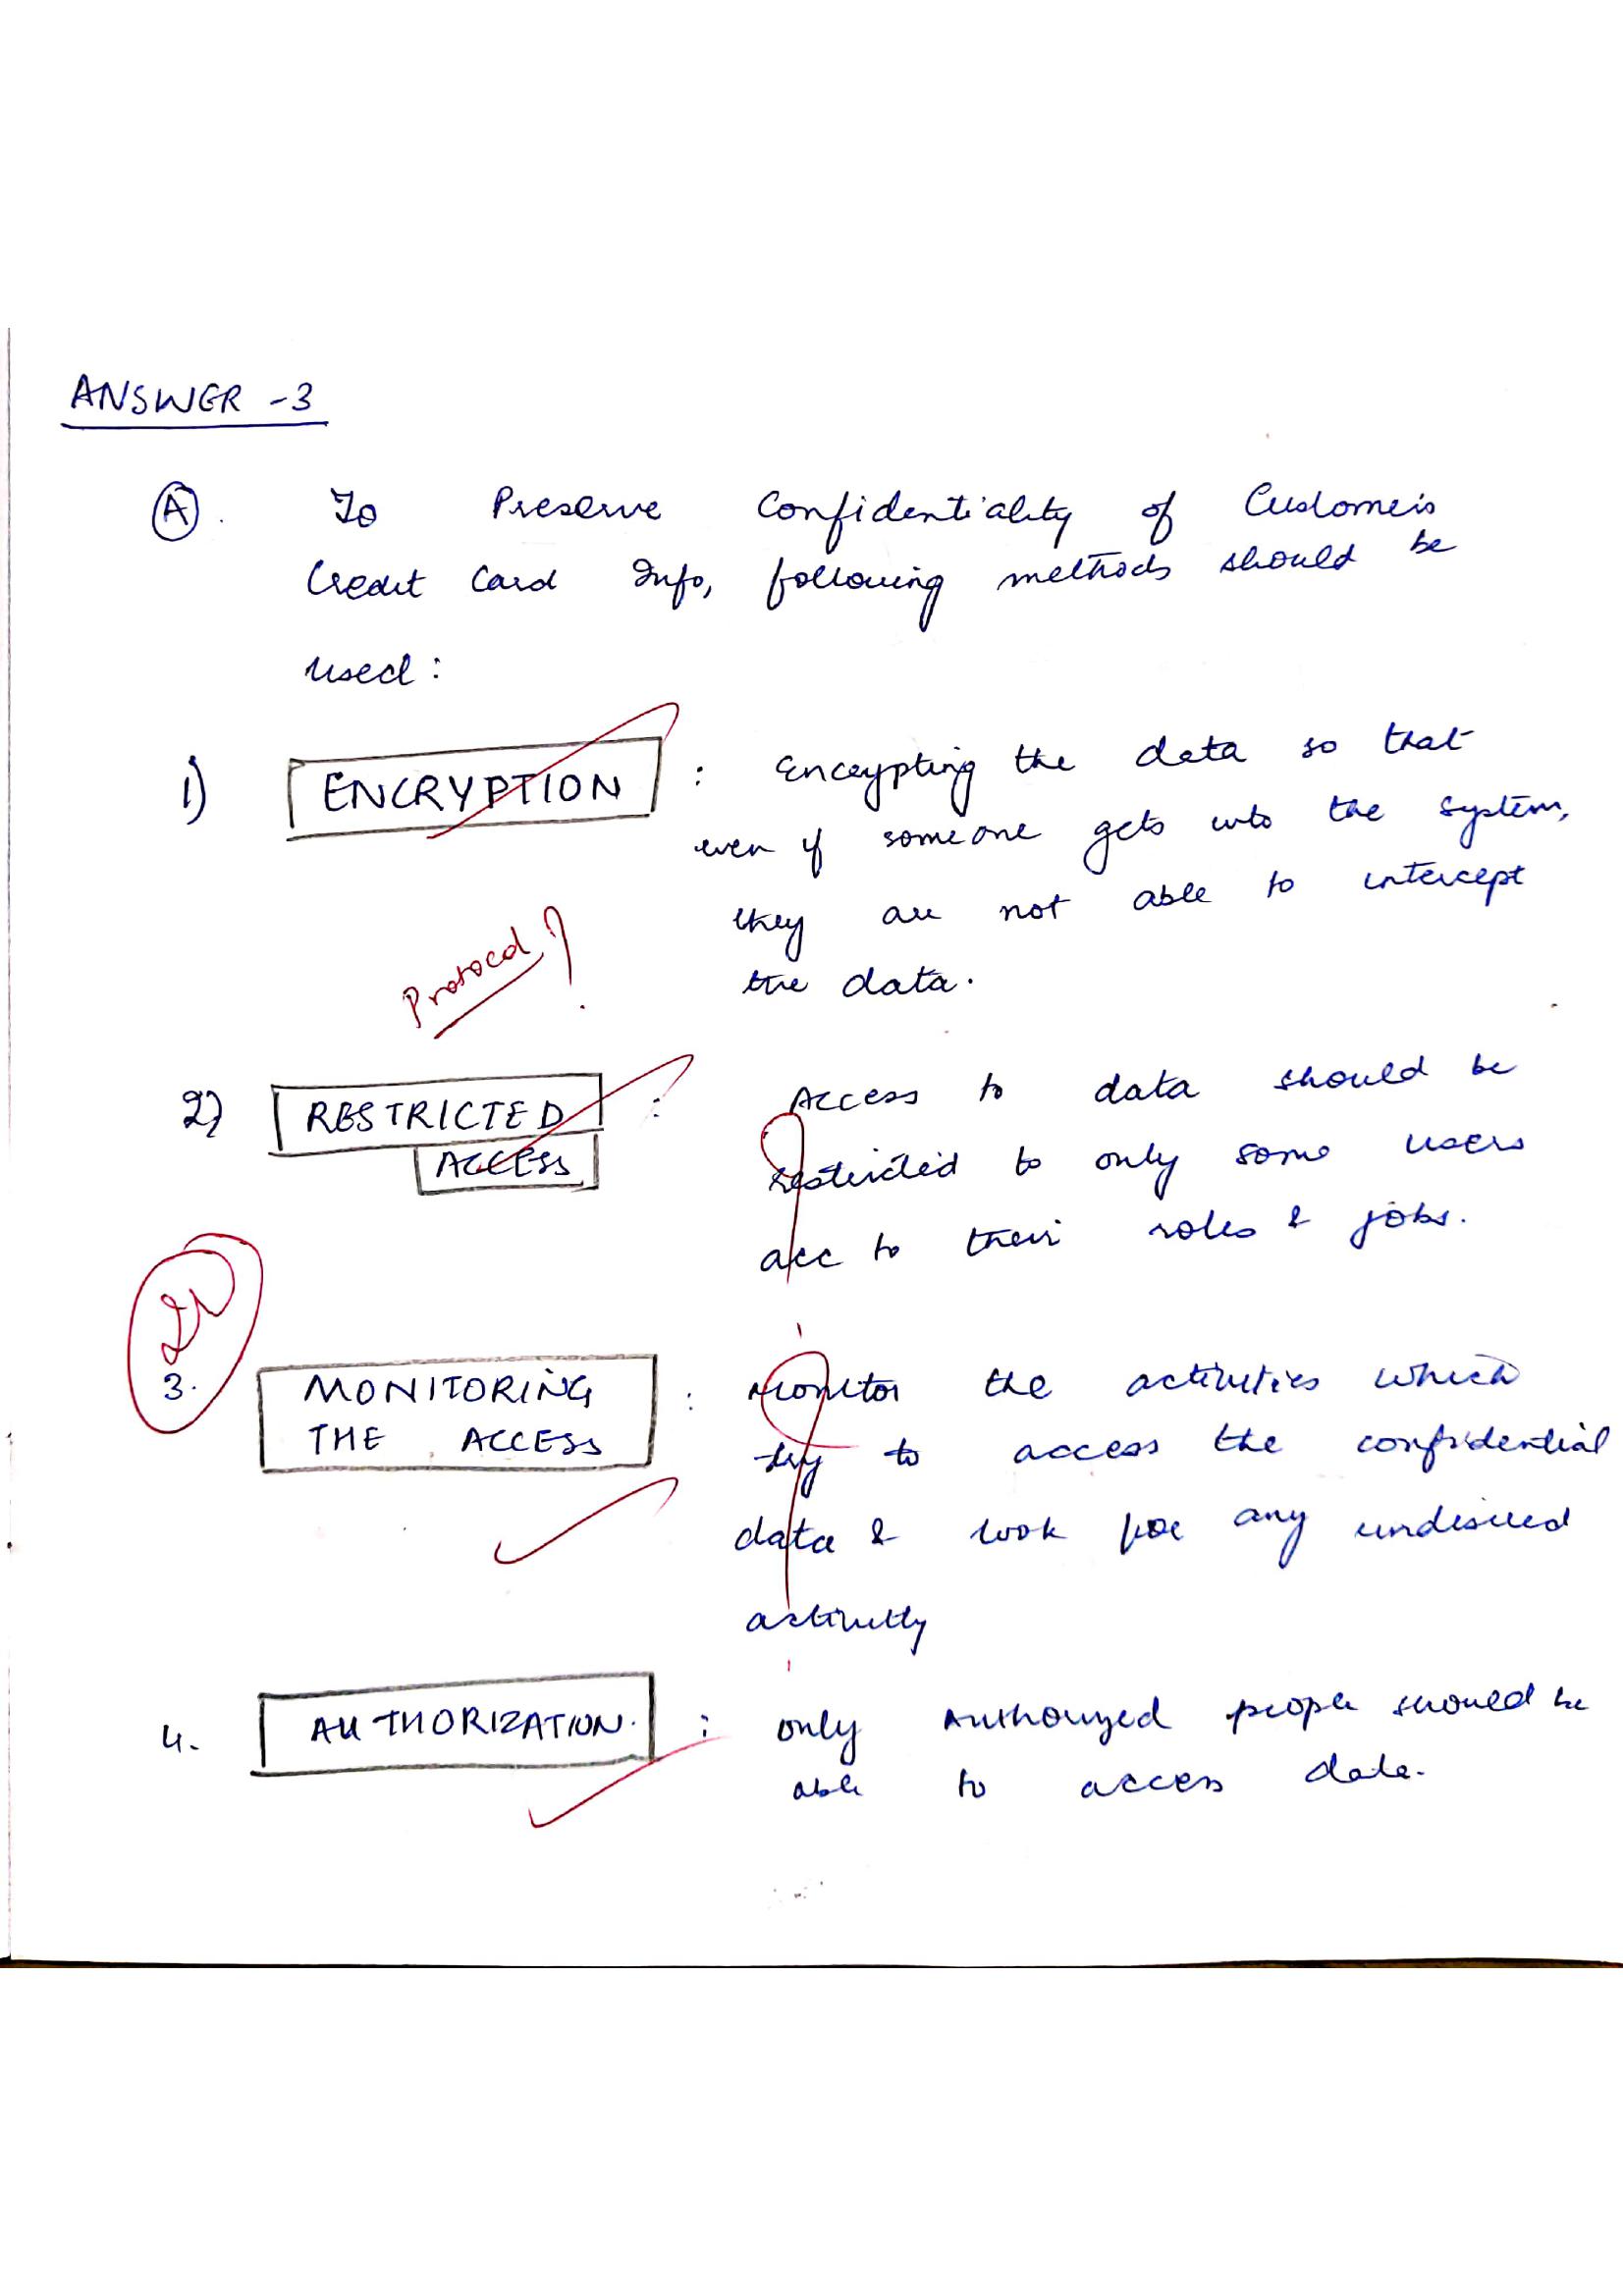 ANSWER -3
(A). To Preserve Confidentiality of Customers
Credit Card Info, following methods should be
used:
1) ENCRYPTION : Encrypting the data so that
even if someone gets into the system,
they are not able to intercept
the data.
Protocol?
2) RESTRICTED ACCESS : Access to data should be
restricted to only some users
acc to their roles & jobs.
3. MONITORING THE ACCESS : Monitor the activities which
try to access the confidential
data & look for any undesired
activity
4. AUTHORIZATION. : only Authorized people should be
able to access data.